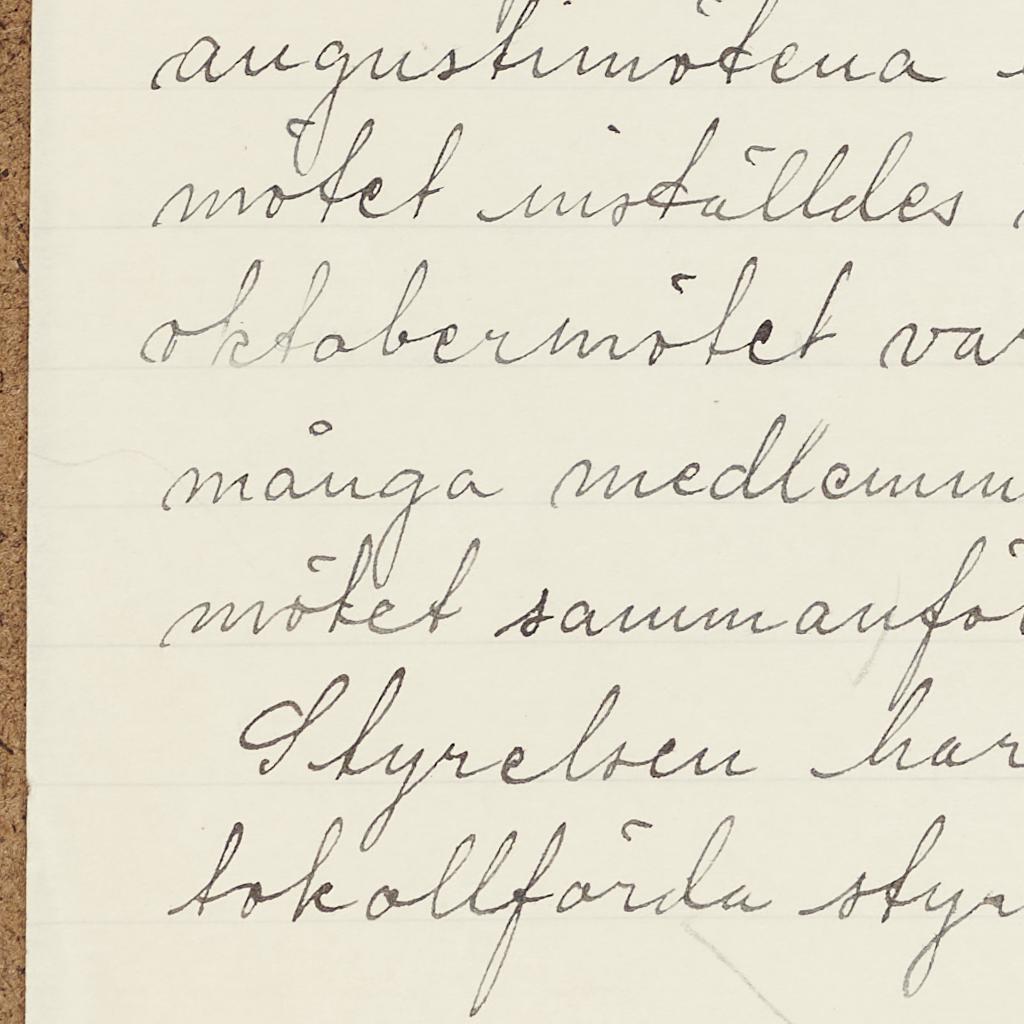 augustimötena
mötet inställdes
oktobermötet var
många medlemm
mötet sammanfö
Styrelsen har
tokollförda styr